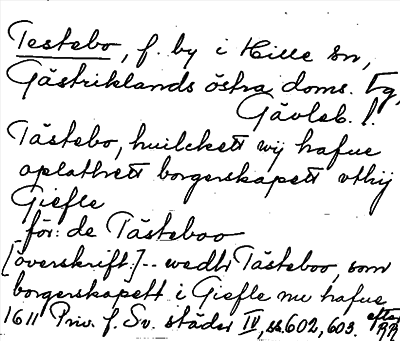 Testebo, f. by i Hille sn,
Gästriklands östra doms. tg,
Gävleb. l.
Tästebo, huilckett wij hafue
oplathett borgerskapett vthij
Giefle
för: de Tästeboo
[överskrift:] -- wedh Tästeboo, som
borgerskapett i Giefle nu hafue
1611 Priv. f. Sv. städer IV, ss. 602, 603. efter RR